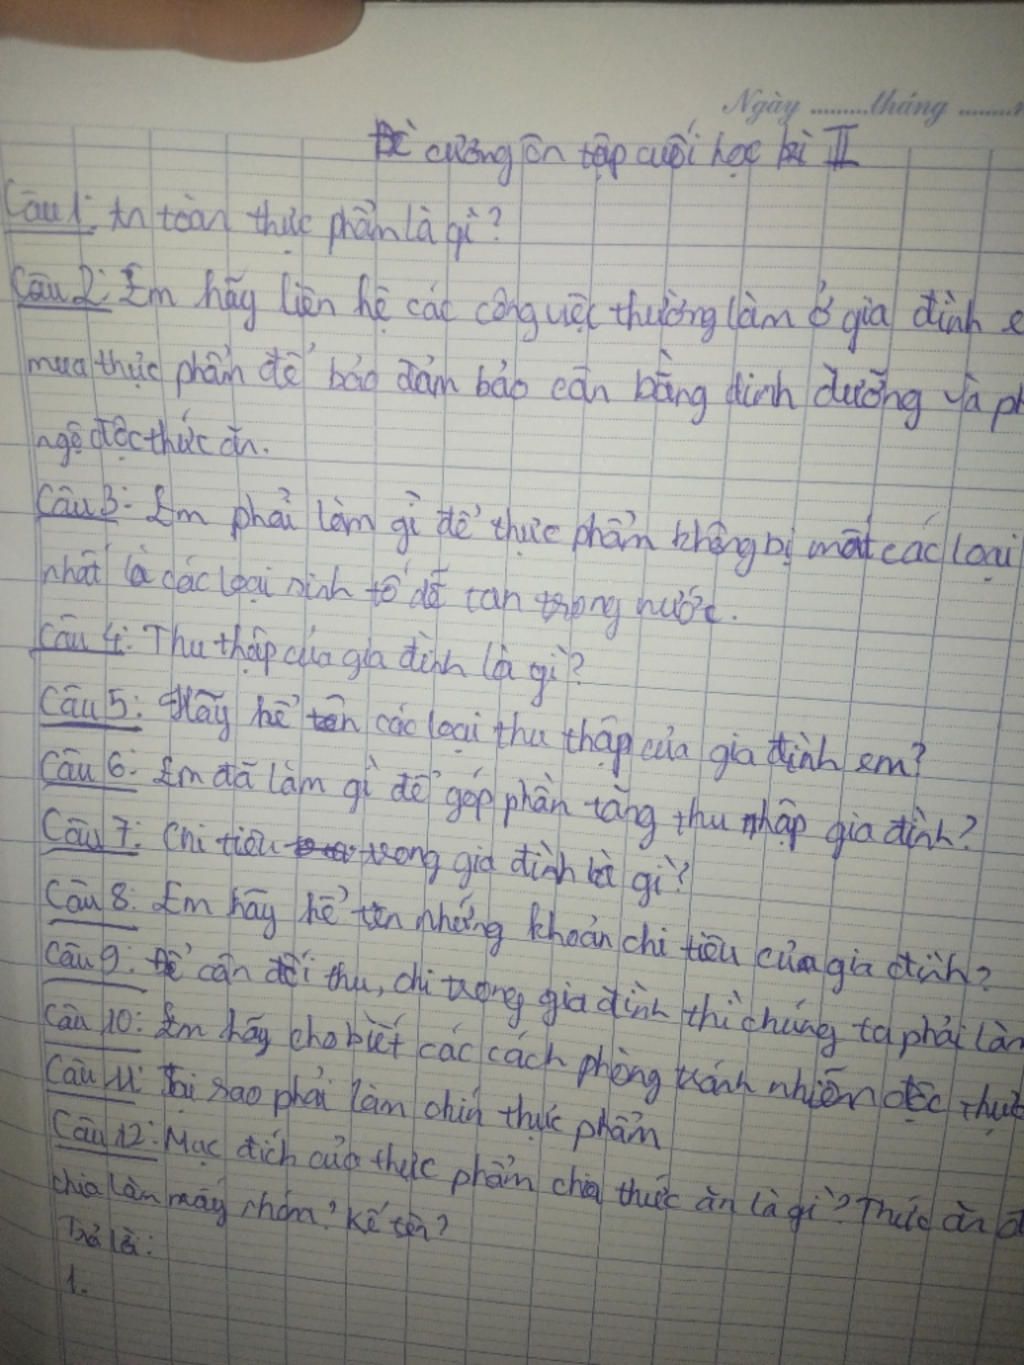 Ngày .........tháng .........
Đề cương ôn tập cuối học kì II
Câu 1: An toàn thực phẩm là gì?
Câu 2: Em hãy liên hệ các công việc thường làm ở gia đình
mua thực phẩm để bảo đảm bảo cân bằng dinh dưỡng và
ngộ độc thức ăn.
Câu 3: Em phải làm gì để thực phẩm không bị mất các loại
nhất là các loại sinh tố dễ tan trong nước.
Câu 4: Thu thập của gia đình là gì?
Câu 5: Hãy kể tên các loại thu thập của gia đình em?
Câu 6: Em đã làm gì để góp phần tăng thu nhập gia đình?
Câu 7: Chi tiêu trong gia đình là gì?
Câu 8: Em hãy kể tên những khoản chi tiêu của gia đình?
Câu 9: Để cân đối thu, chi trong gia đình thì chúng ta phải làm
Câu 10: Em hãy cho biết các cách phòng tránh nhiễm độc thực
Câu 11: Tại sao phải làm chín thực phẩm
Câu 12: Mục đích của thực phẩm chia thức ăn là gì? Thức ăn
chia làm mấy nhóm? Kể tên?
Trả lời:
1.